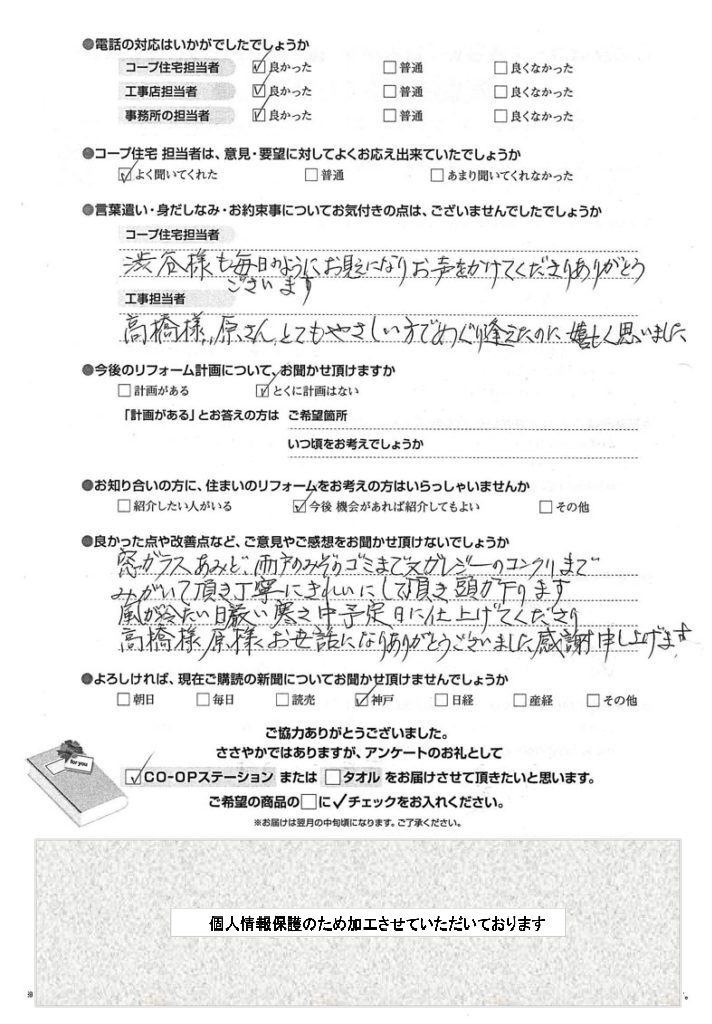 ●電話の対応はいかがでしたでしょうか
コープ住宅担当者 ☑良かった □普通 □良くなかった
工事店担当者 ☑良かった □普通 □良くなかった
事務所の担当者 ☑良かった □普通 □良くなかった
●コープ住宅 担当者は、意見・要望に対してよくお応え出来ていたでしょうか
☑よく聞いてくれた □普通 □あまり聞いてくれなかった
●言葉遣い・身だしなみ・お約束事についてお気付きの点は、ございませんでしたでしょうか
コープ住宅担当者
渋谷様も毎日のようにお見えになりお声をかけてくださりありがとう
ございます
工事担当者
高橋様、原さん、とてもやさしい方でめぐり逢えたのに嬉しく思いました
●今後のリフォーム計画について、お聞かせ頂けますか
□計画がある ☑とくに計画はない
「計画がある」とお答えの方は ご希望箇所
いつ頃をお考えでしょうか
●お知り合いの方に、住まいのリフォームをお考えの方はいらっしゃいませんか
□紹介したい人がいる ☑今後 機会があれば紹介してもよい □その他
●良かった点や改善点など、ご意見やご感想をお聞かせ頂けないでしょうか
窓ガラスあみど、雨戸のみぞのゴミまで又ガレジーのコンクリまで
みがいて頂き丁寧にきれいにして頂き頭が下ります
風が冷たい日厳い寒さ中予定日に仕上げてくださり
高橋様原様お世話になりありがとうございました感謝申し上げます
●よろしければ、現在ご購読の新聞についてお聞かせ頂けませんでしょうか
□朝日 □毎日 □読売 ☑神戸 □日経 □産経 □その他
ご協力ありがとうございました。
ささやかではありますが、アンケートのお礼として
for you
☑CO-OPステーション または □タオル をお届けさせて頂きたいと思います。
ご希望の商品の□に✓チェックをお入れください。
※お届けは翌月の中旬頃になります。ご了承ください。
個人情報保護のため加工させていただいております
※